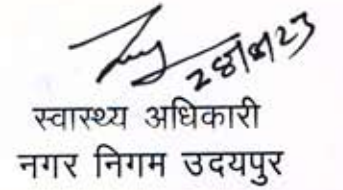 28/8/23
स्वास्थ्य अधिकारी
नगर निगम उदयपुर